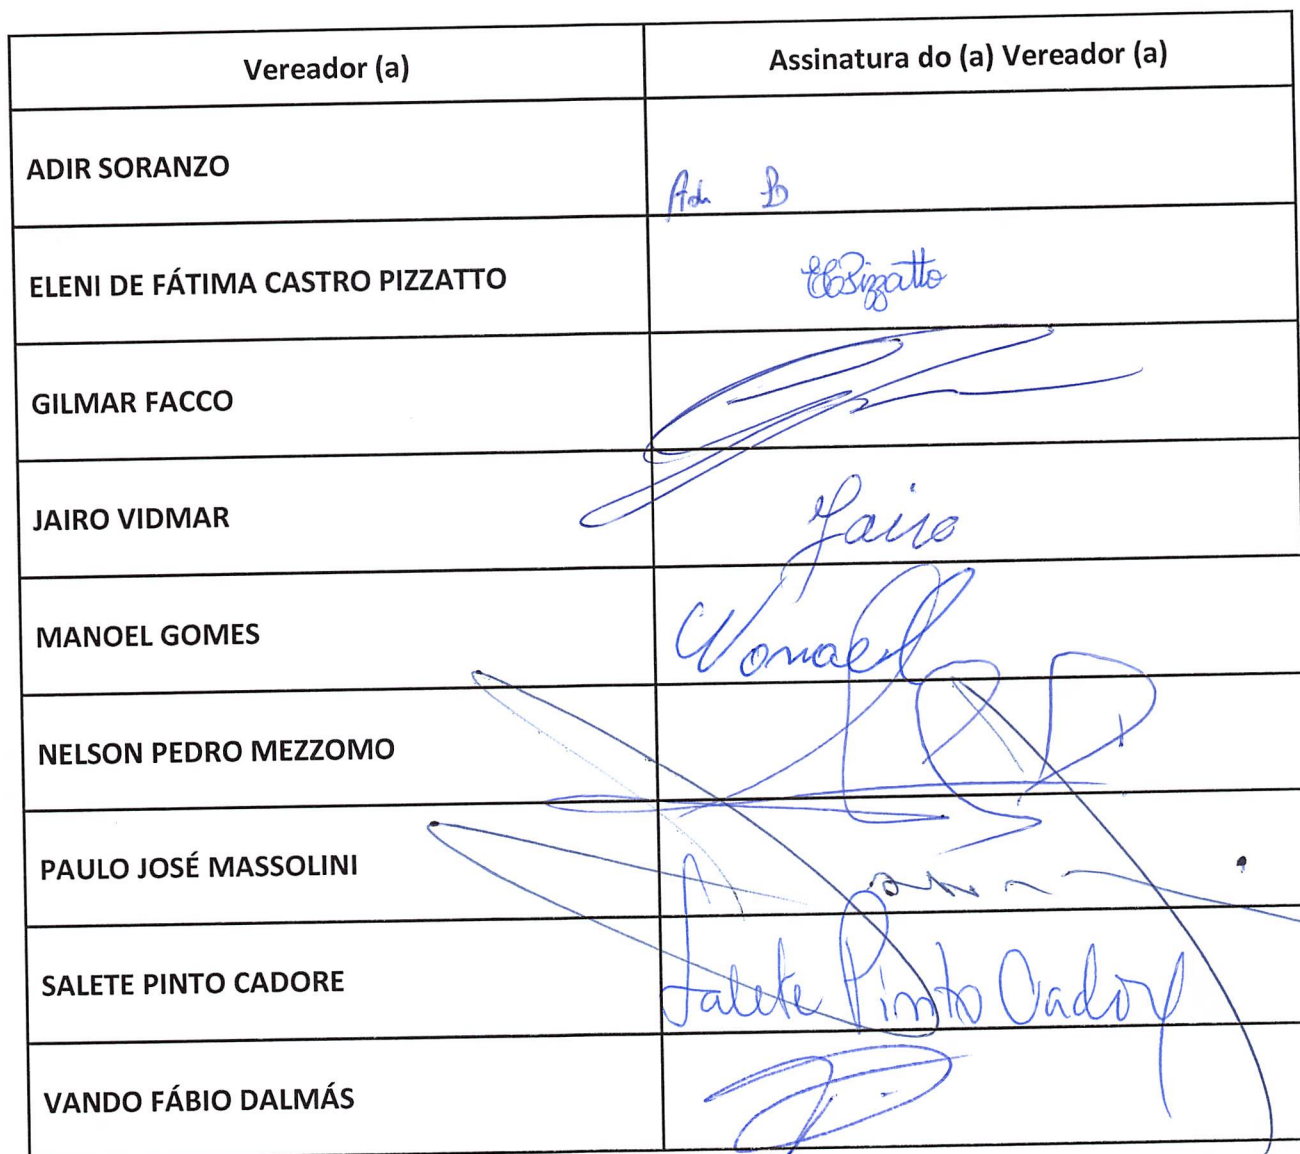 Vereador (a)
Assinatura do (a) Vereador (a)
ADIR SORANZO
ELENI DE FÁTIMA CASTRO PIZZATTO
ECPizzatto
GILMAR FACCO
JAIRO VIDMAR
Jairo
MANOEL GOMES
NELSON PEDRO MEZZOMO
PAULO JOSÉ MASSOLINI
SALETE PINTO CADORE
Salete Pinto Cadore
VANDO FÁBIO DALMÁS